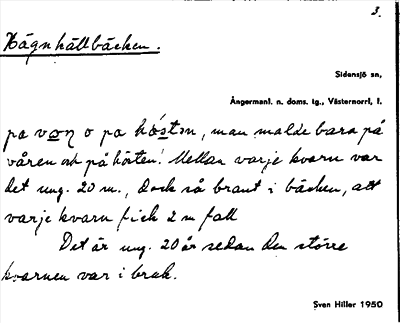 3.
Hägnhällbäcken.
Sidensjö sn,
Ångermanl. n. doms. tg., Västernorrl, l.
pa von o pa hóstn, man malde bara på
våren och på hösten! Mellan varje kvarn var
det ung. 20 m., dock så brant i bäcken, att
varje kvarn fick 2 m fall
Det är ung. 20 år sedan den större
kvarnen var i bruk.
Sven Hiller 1950